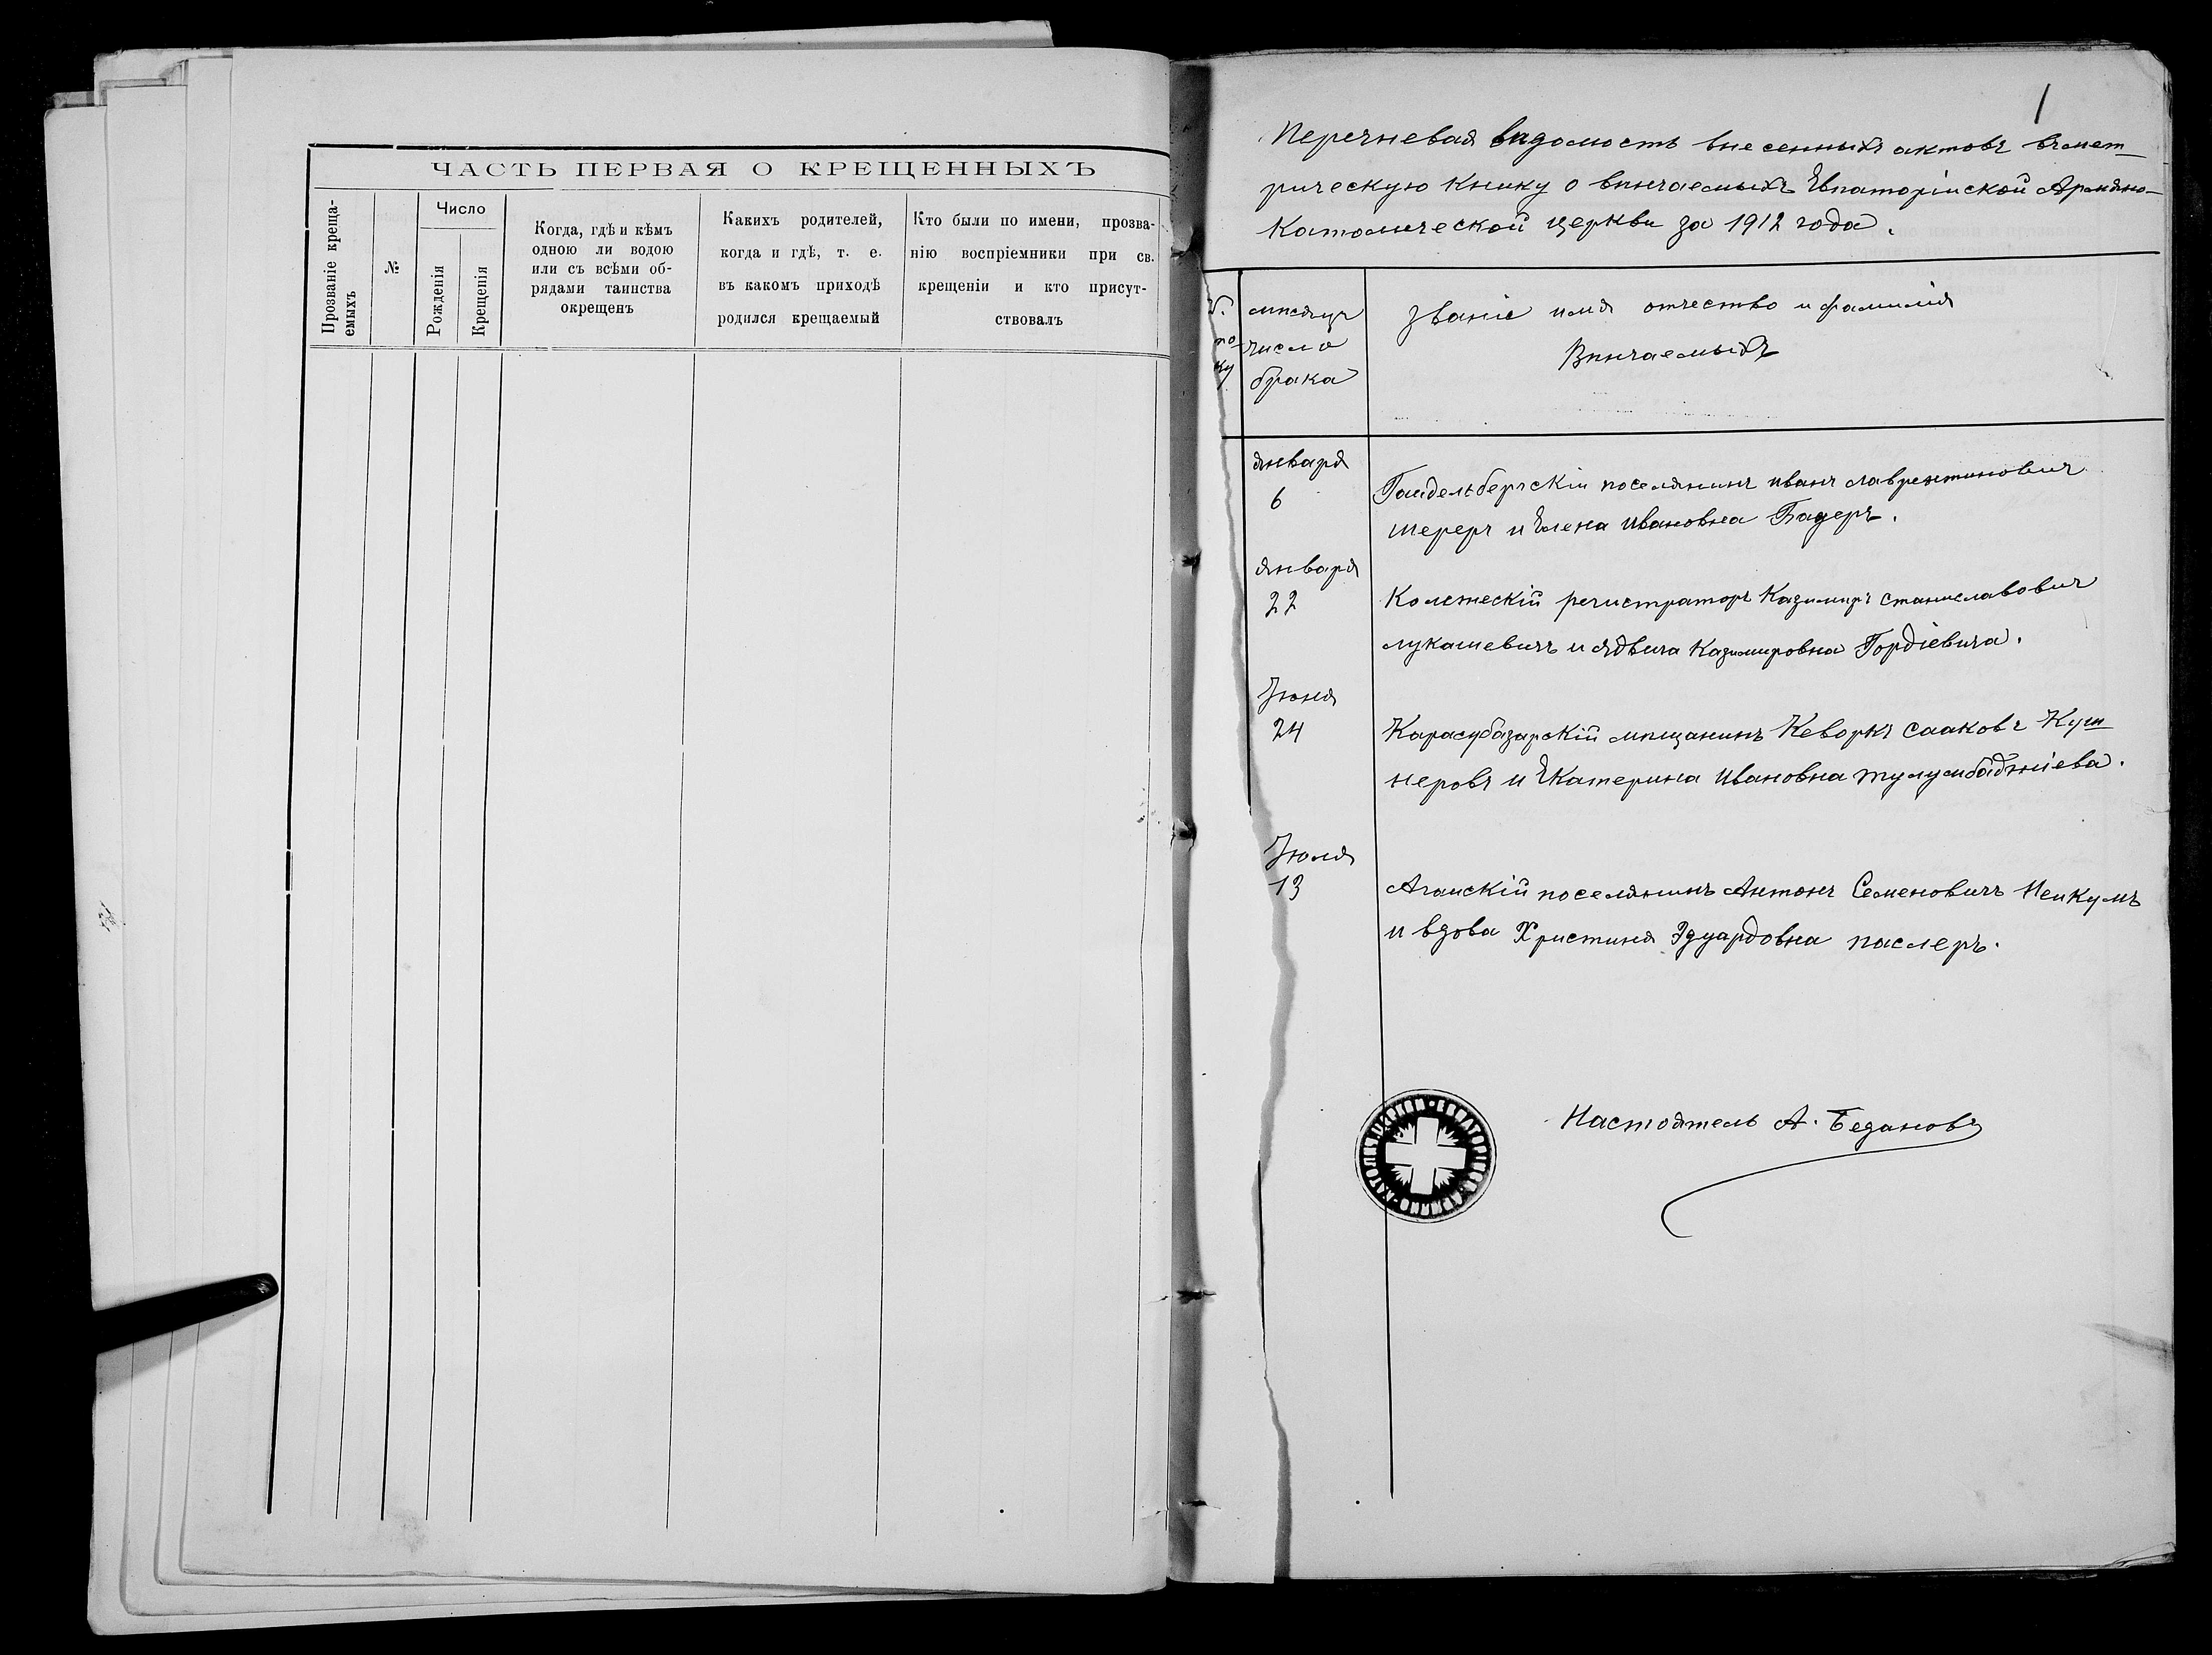 ЧАСТЬ ПЕРВАЯ О КРЕЩЕННЫХЪ
Прозваніе креща-
емыхъ
№
Число
Рожденія
Крещенія
Когда, гдѣ и кѣмъ
одною ли водою
или съ всѣми об-
рядами таинства
окрещенъ
Какихъ родителей,
когда и гдѣ, т. е.
въ какомъ приходѣ
родился крещаемый
Кто были по имени, прозва-
нію воспріемники при св.
крещеніи и кто присут-
ствовалъ
1
Перечневая вѣдомость внесенныхъ актовъ въ мет-
рическую книгу о вѣнчаемыхъ Евпаторійской Армяно-
Католической церкви за 1912 года.
мѣсяцъ
число
брака
званіе имя отчество и фамилія
Вѣнчаемыхъ
января
6
Гайдельбергскій поселянинъ иванъ лаврентиновичъ
шереръ и Елена ивановна Бадеръ.
января
22
Колежескій регистраторъ Казимиръ станиславовичъ
лукашевичъ и ядвига Казимировна Гордіевича.
Іюня
24
Карасубазарскій мѣщанинъ Кеворкъ сааковъ Куш-
неровъ и Екатерина ивановна тулумбаджіева.
Іюля
13
Агайскій поселянинъ Антонъ Семеновичъ Нейкумъ
и вдова Христина Эдуардовна паслеръ.
Настоятель А. Бедановъ